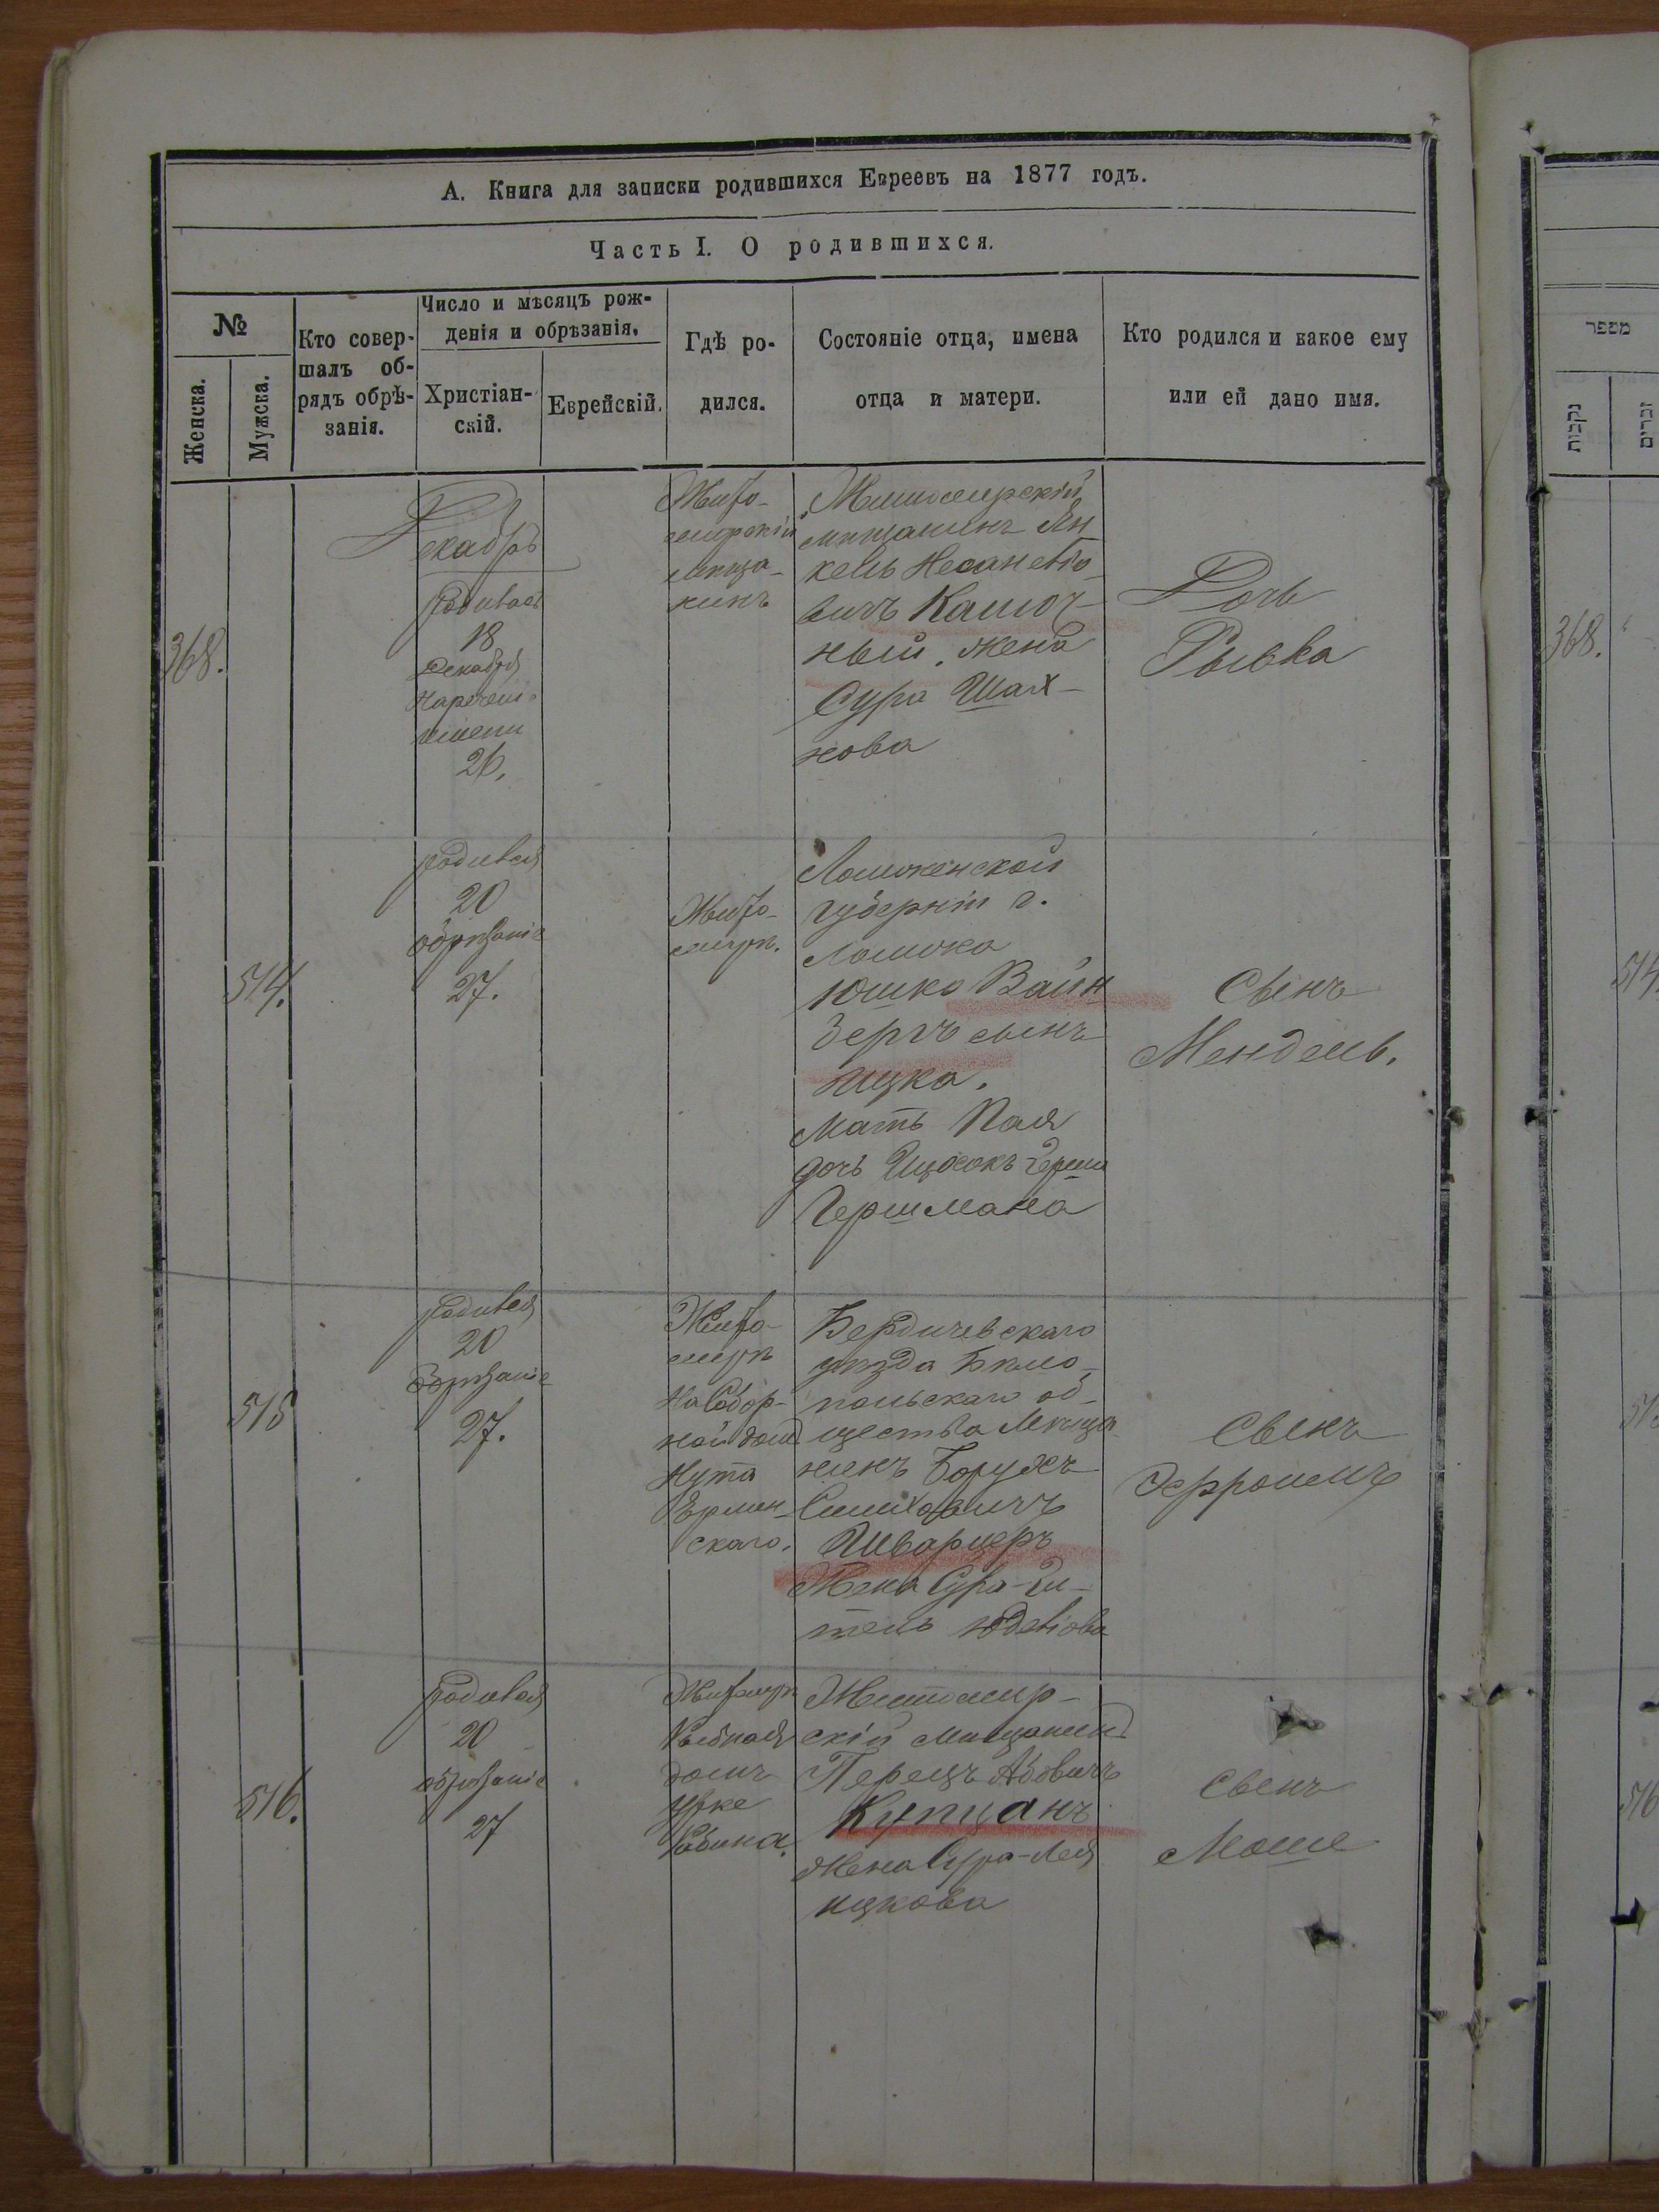 А. Книга для записки родившихся Евреевъ на 1877 годъ.
Часть I. О родившихся.
№
Женска.
Мужска.
Кто совер-
шалъ об-
рядъ обрѣ-
занія.
Число и мѣсяцъ рож-
денія и обрѣзанія.
Христіан-
скій.
Еврейскій.
Гдѣ ро-
дился.
Состояніе отца, имена
отца и матери.
Кто родился и какое ему
или ей дано имя.
368.
Декабрь
родилась
18
Декабря
Наречен.
имени
26.
Жито-
мирскій
мѣща-
нинъ
Житомирскій
мѣщанинъ Ян
кель Несанеліо
вичъ Камоч-
ный. жена
Сура Шах-
нова
Дочь
Рывка
514.
родился
20
обрѣзаніе
27.
Жито-
миръ.
Ломженской
губерніи г.
Ломжа
Юшко Вайн
бергъ сынъ
Ицка.
Мать Пая
дочь Ицхокъ Герша
Гершмана
Сынъ
Мендель.
515
родился
20
Обрѣзаніе
27.
Жито-
миръ
На Собор-
ной дом.
Нута
скаго.
Бердичевскаго
уѣзда Бѣло-
польскаго об-
щества Мѣща
нинъ Борухъ
Симховичъ
Шварцеръ
Жена Сура-Ги-
тель
Сынъ
516.
родился
20
обрѣзаніе
27
Житомиръ
Рыбная
домъ
Рабина.
Житомир-
скій Мѣщанинъ
Перецъ Абовичъ
Купцанъ
Жена Сура-Лея
ицкова
Сынъ
Моше
מספר
נקבות
זכרים
368.
514.
516